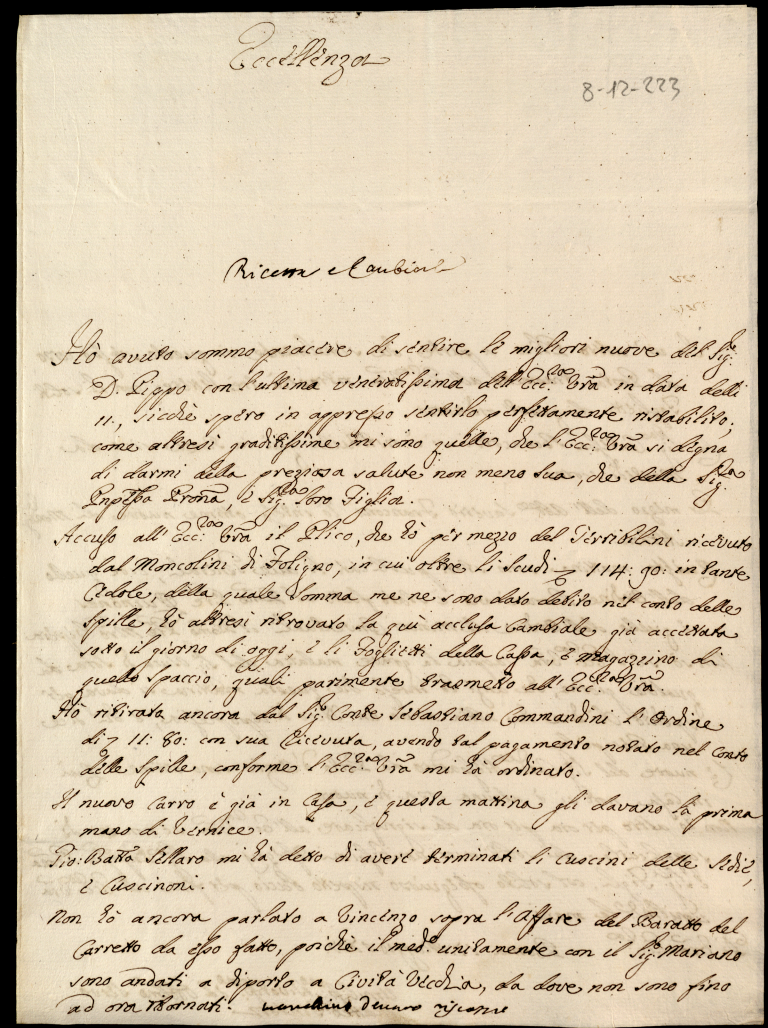 Eccellenza
8-12-223
Ricevuta e Cambiale
Hò avuto sommo piacere di sentire le migliori nuove del Sig.e
D. Pippo con l'ultima veneratissima dell'Ecc.za Vrã in data delli
11., sicchè spero in appresso sentirlo perfettamente ristabilito;
come altresì graditissime mi sono quelle, che l'Ecc.za Vrã si degna
di darmi della preziosa salute non meno sua, che della Sig.ra
Pnp̃ssa Proña, e Sig.ra loro Figlia.
Accuso all'Ecc.za Vrã il Plico, che hò per mezzo del Terribilini ricevuto
dal Moncolini di Foligno, in cui oltre li Scudi 114: 90: in tante
Cedole, della quale somma me ne sono dato debito nel conto delle
Spille, hò altresì ritrovato la quì acclusa Cambiale già accettata
sotto il giorno di oggi, e li Foglietti della Cassa, e Magazzino di
questo Spaccio, quali parimente trasmetto all'Ecc.za Vrã.
Hò ritirata ancora dal Sig. Conte Sebastiano Commandini l'Ordine
di 11: 80: con sua ricevuta, avendo tal pagamento notato nel Conto
delle Spille, conforme l'Ecc.za Vrã mi hà ordinato.
Il nuovo Carro è già in Casa, e questa mattina gli davano la prima
mano di Vernice.
Gio: Batta Sellaro mi hà detto di avere terminati li Cuscini delle Sedie,
e Cuscinoni.
Non hò ancora parlato a Vincenzo sopra l'Affare del Baratto del
Carretto da esso fatto, poichè il med.o unitamente con il Sig.e Mariano
sono andati a diporto a Cività Vecchia, da dove non sono fino
ad ora ritornati.